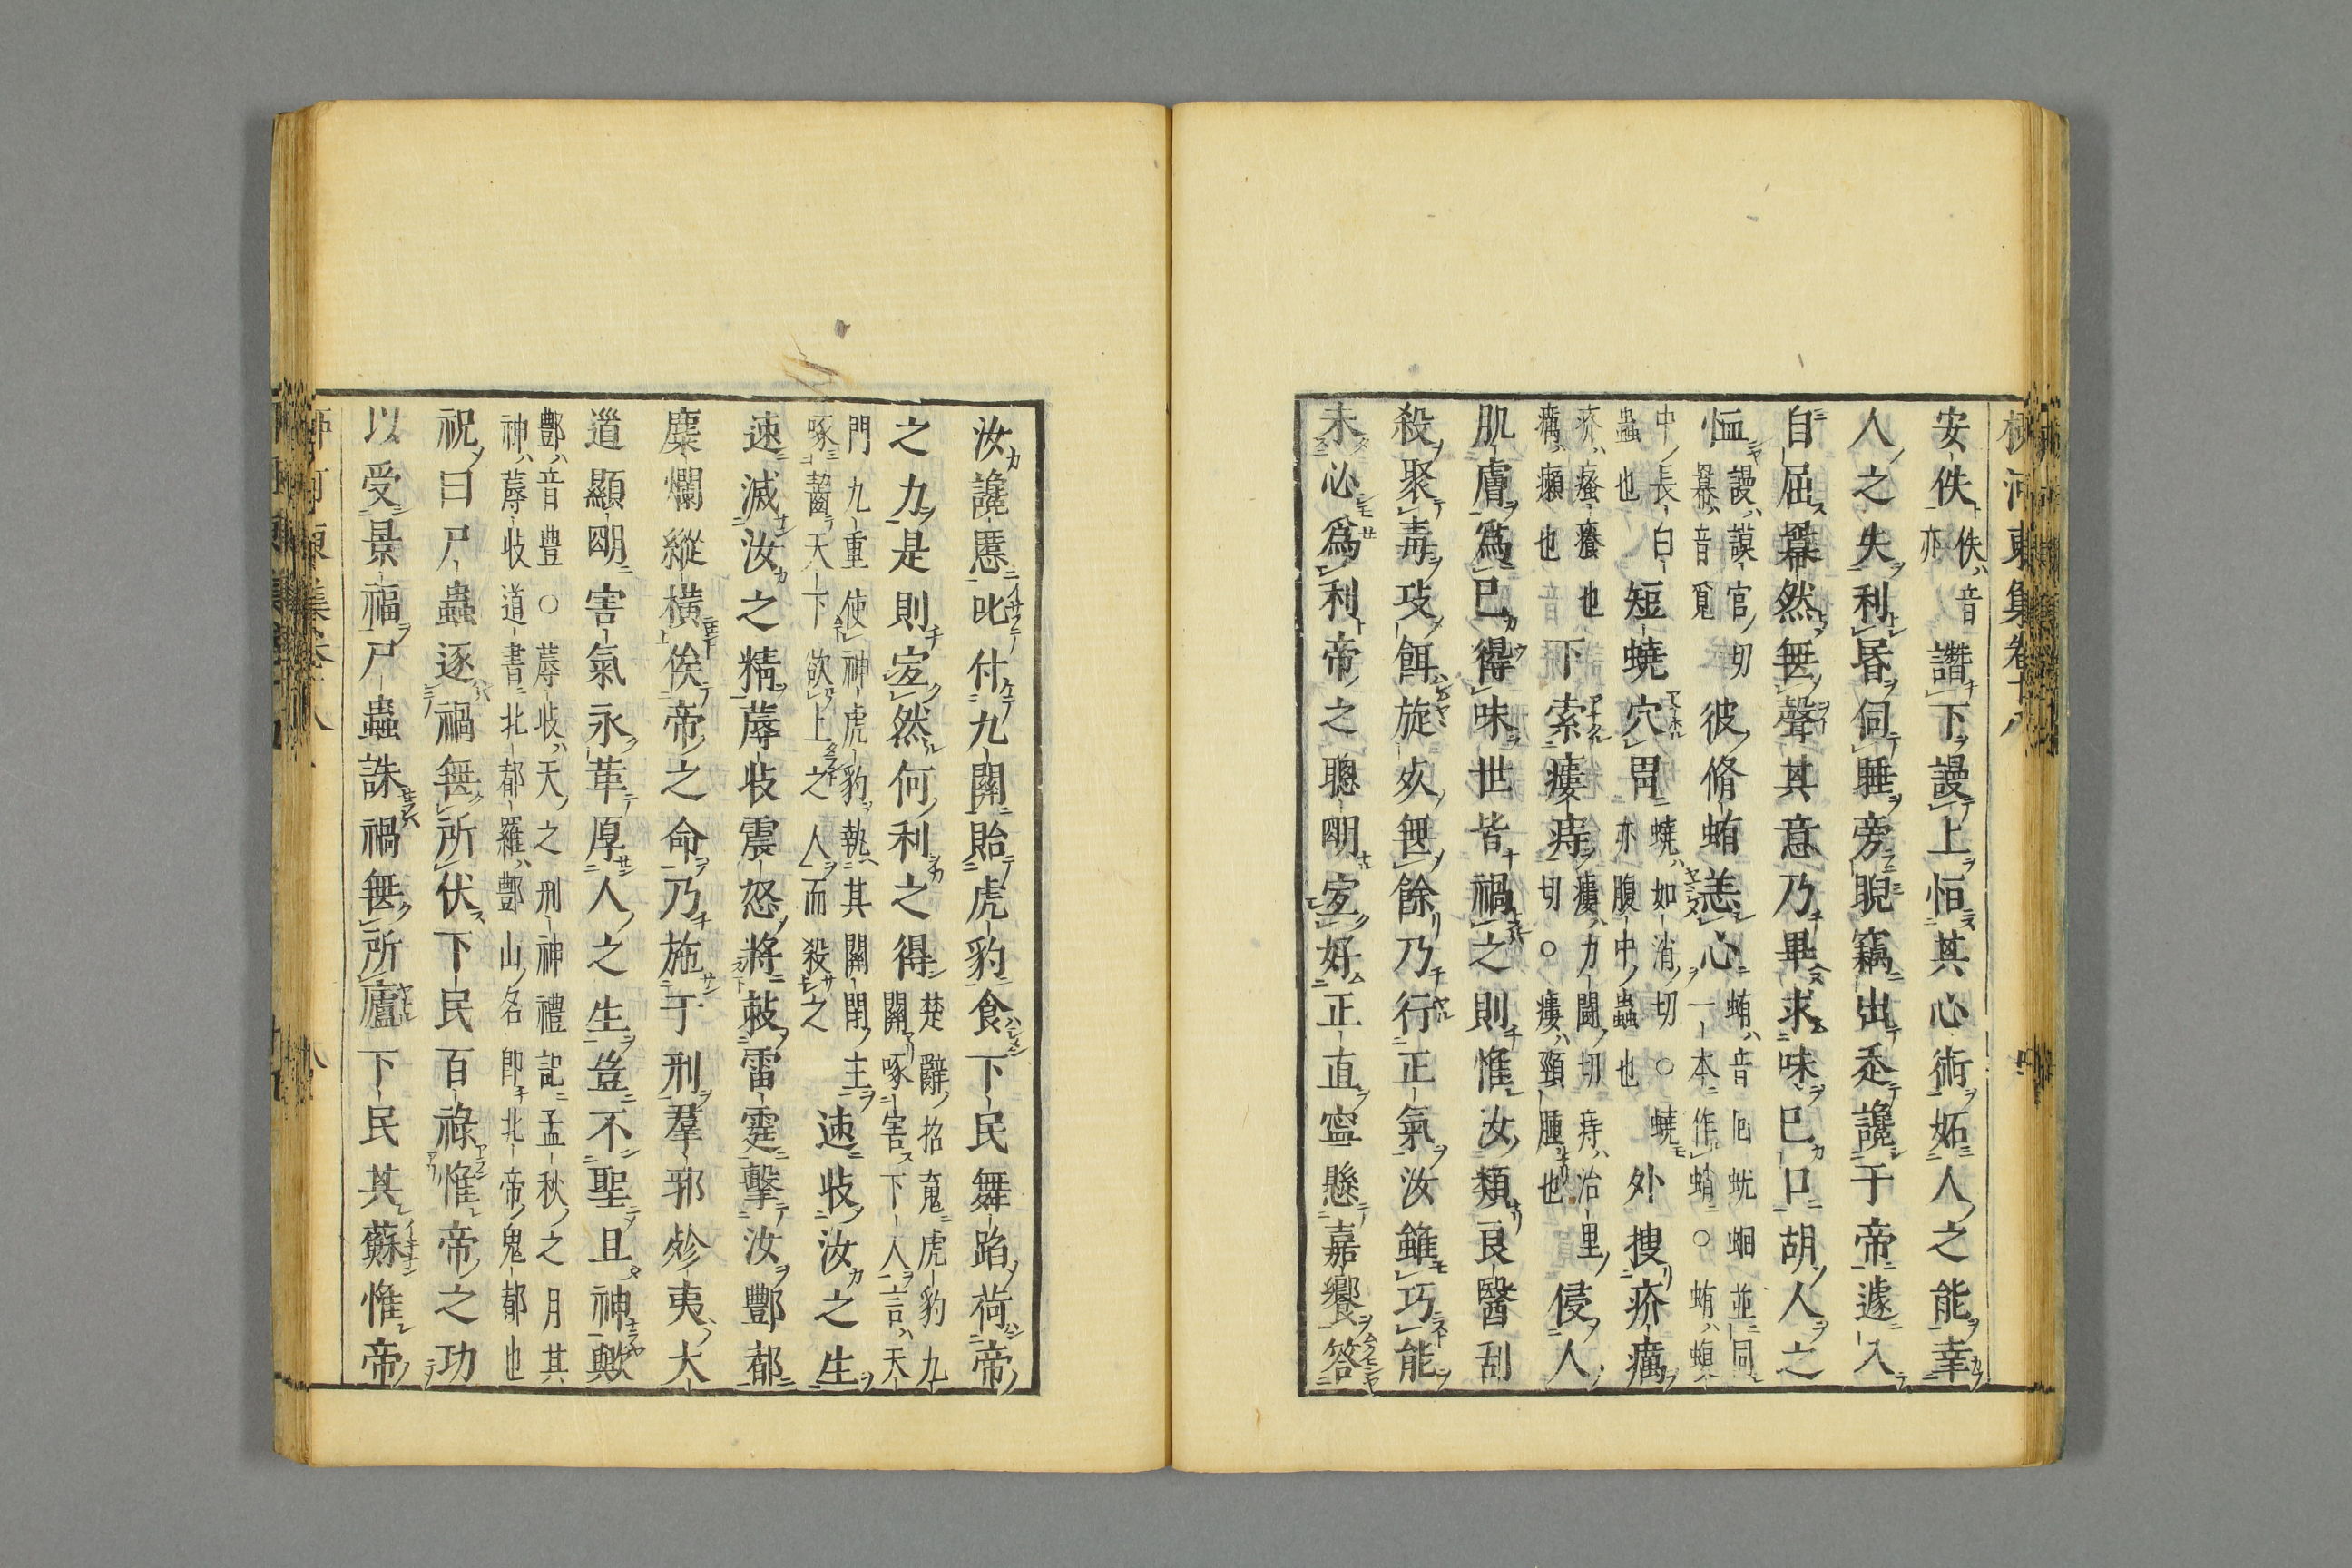 柳河東集卷十八
安佚佚音亦譖下謾上恒其心術妬人之能幸
人之失利昏伺睡旁睨竊出走讒于帝遽入
自屈冪然無聲其意乃畢求味己口胡人之
恤謾謨官切冪音覓彼脩蛕恙心蛕音囘蚘蛔並同一本作蛸○蛕蝢
中長白蟲也短蟯穴胃蟯如消切○蟯亦腹中蟲也外搜疥癘
疥瘙癢也癘癩也下索瘻痔瘻力鬭切痔治里切○瘻頸腫也侵人
肌膚爲己得味世皆禍之則惟汝類良醫刮
殺聚毒攻餌旋死無餘乃行正氣汝雖巧能
未必爲利帝之聰明宜好正直寧懸嘉饗答
汝讒慝叱付九關貽虎豹食下民舞蹈荷帝
之力是則宜然何利之得楚辭招䰟虎豹九關啄害下人言天
門九重使神虎豹執其關閉主啄齧天下欲上之人而殺之速收汝之生
速滅汝之精蓐收震怒將敕雷霆擊汝酆都
糜爛縱橫俟帝之命乃施于刑羣邪殄夷大
道顯明害氣永革厚人之生豈不聖且神歟
酆音豊○蓐收天之刑神禮記孟秋之月其神蓐收道書北都羅酆山名卽北帝鬼都也
祝曰尸蟲逐禍無所伏下民百祿惟帝之功
以受景福尸蟲誅禍無所廬下民其蘇惟帝